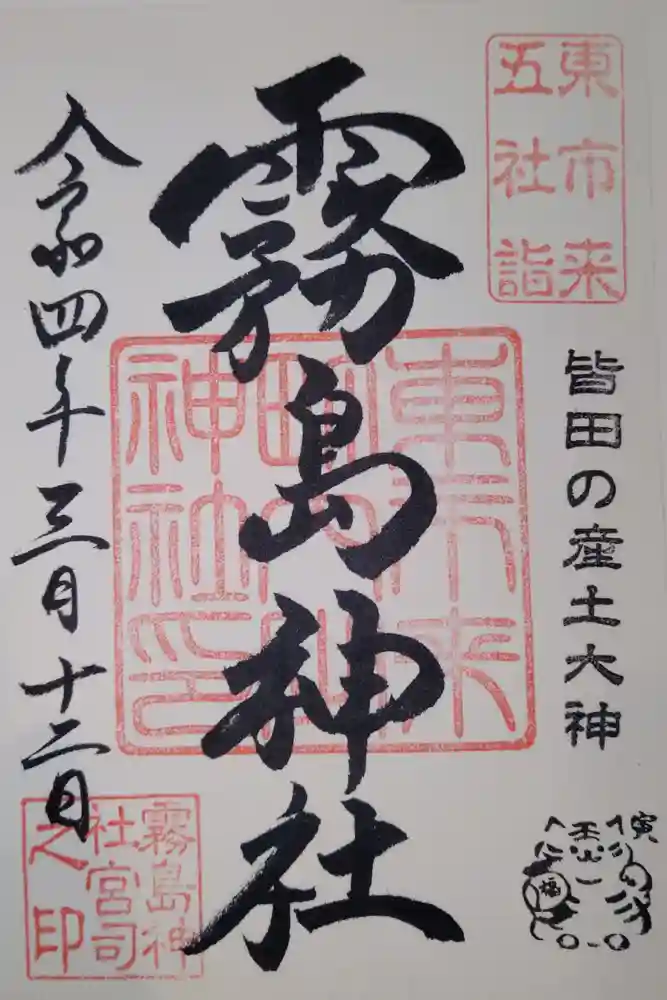 東市来
五社詣
皆田の産土大神
霧島神社
令和四年三月十二日
霧島神
社宮司
之印
東市来
神社印
寅
福